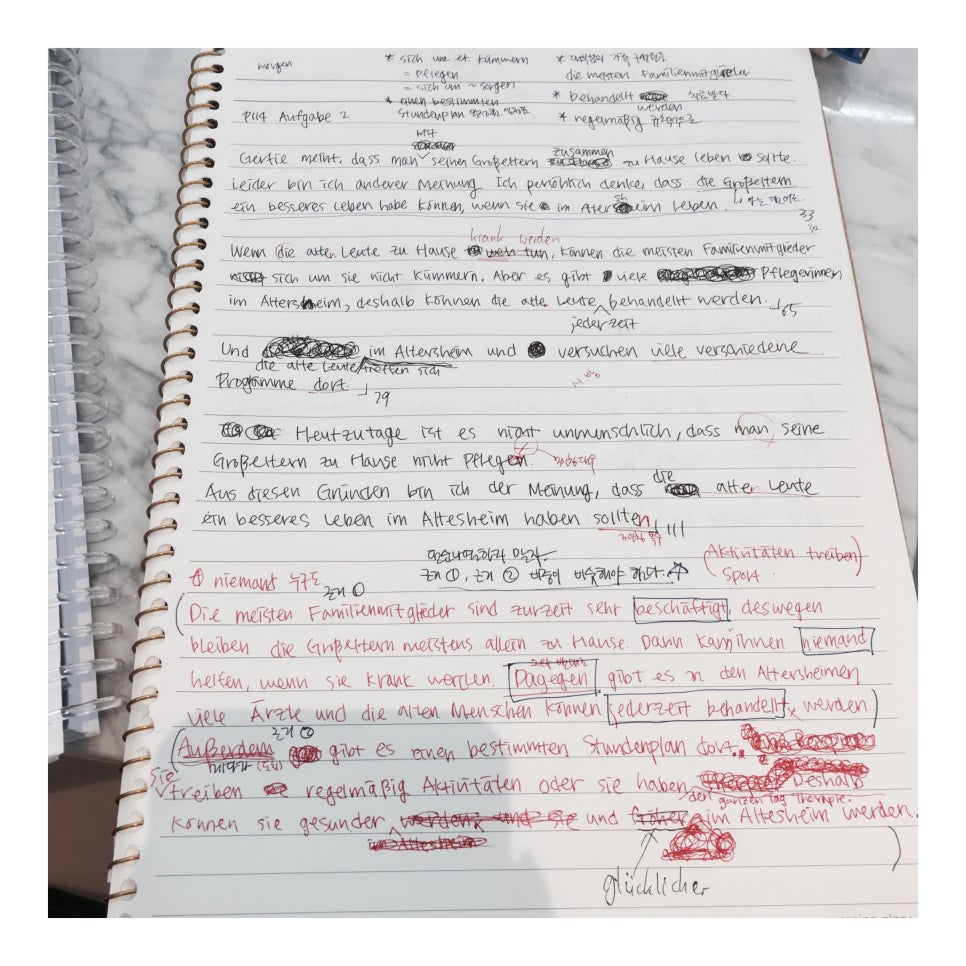 morgen
* sich um et. kümmern
= pflegen
= sich um ~ sorgen.
* einen bestimmten
Stundenplan
die meisten Familienmitglieder
* behandelt werden
* regelmäßig 규칙적으로
P114 Aufgabe 2
Gertie meint, dass man mit seinen Großeltern zusammen zu Hause leben sollte.
Leider bin ich anderer Meinung. Ich persönlich denke, dass die Großeltern
ein besseres Leben habe können, wenn sie im Altersheim leben.
33
krank werden
Wenn die alten Leute zu Hause weh tun, können die meisten Familienmitglieder
sich um sie nicht kümmern. Aber es gibt viele Pflegerinnen
im Altersheim, deshalb können die alte Leute jederzeit behandelt werden. 65
Und die alte Leute treffen sich im Altersheim und versuchen viele verschiedene
Programme dort. 79
Heutzutage ist es nicht unmunschlich, dass man seine
Großeltern zu Hause nicht pflegen.
Aus diesen Gründen bin ich der Meinung, dass die alten Leute
ein besseres Leben im Altesheim haben sollten. 111
근거 ①, 근거 ② 비중이 비슷해야 한다.
(Aktivitäten treiben)
Sport
niemand 누구도
근거 ①
(Die meisten Familienmitglieder sind zurzeit sehr beschäftigt, deswegen
bleiben die Großeltern meistens allein zu Hause. Dann kann ihnen niemand
helfen, wenn sie krank werden. Dagegen gibt es in den Altersheimen
viele Ärzte und die alten Menschen können jederzeit behandelt werden)
근거 ②
(Außerdem gibt es einen bestimmten Stundenplan dort.
Sie treiben regelmäßig Aktivitäten oder sie haben den ganzen Tag Therapie. Deshalb
können sie gesunder und früher im Altesheim werden.
)
glücklicher